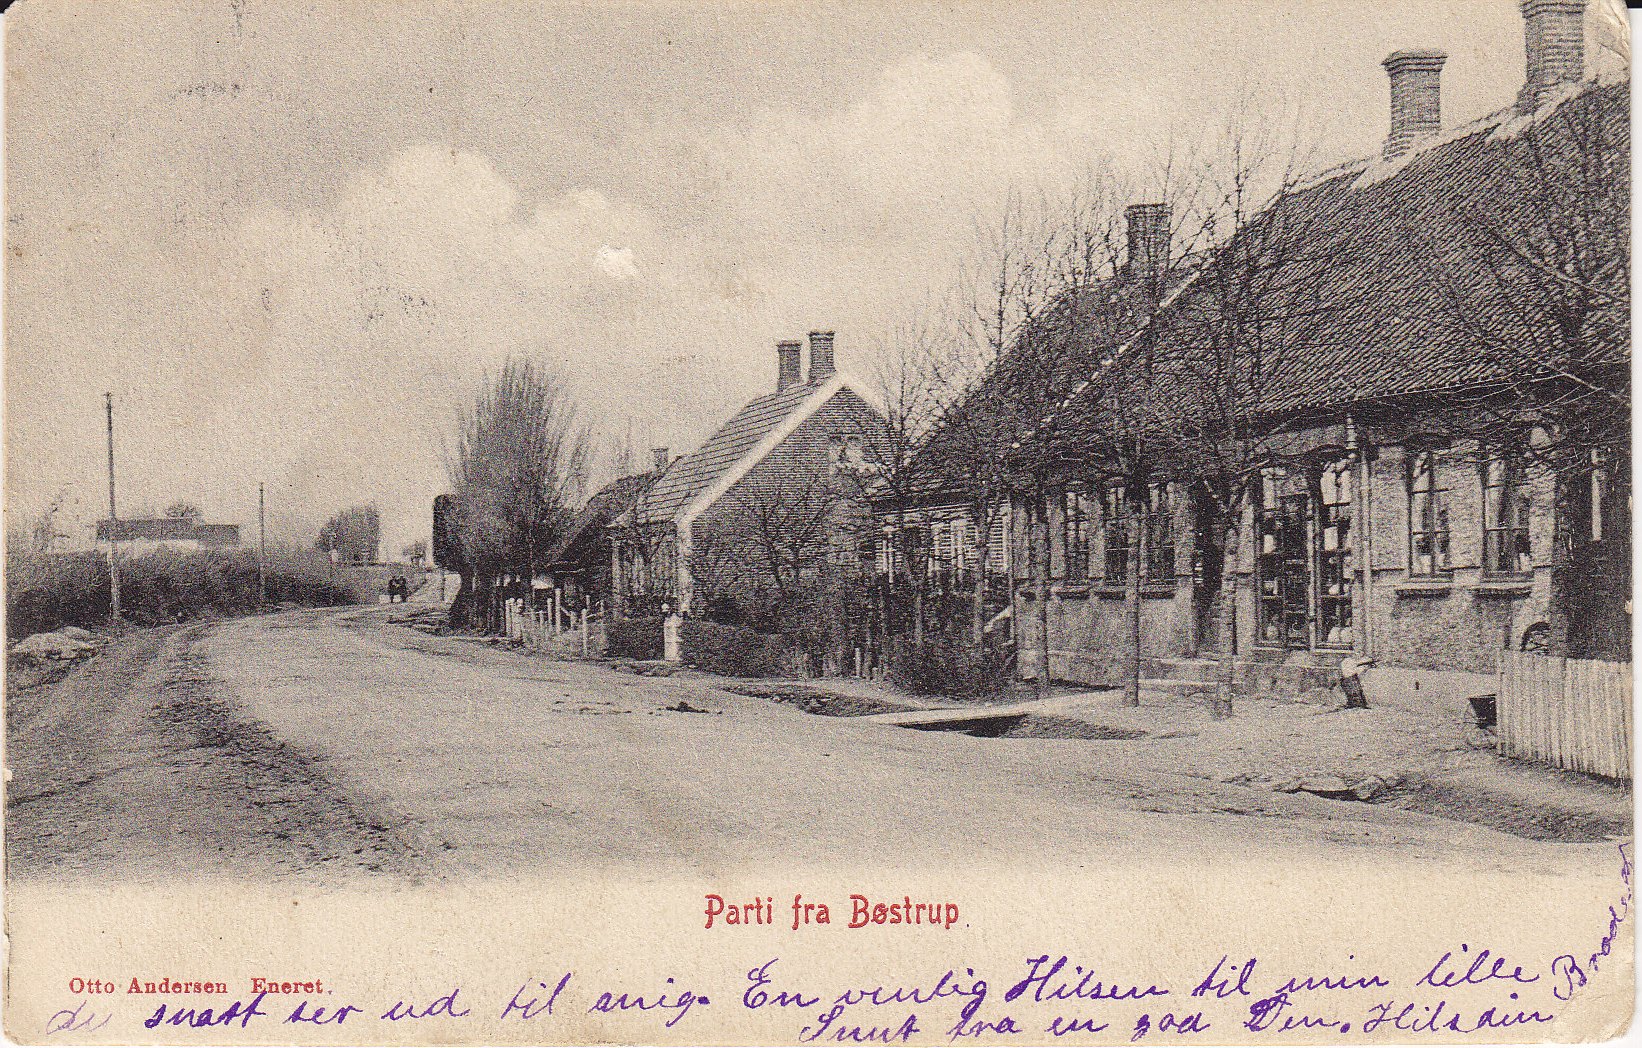 Parti fra Bøstrup.
Otto Andersen Eneret.
du snart ser ud til mig. En venlig Hilsen til min lille
Snut fra en god Ven. Hils din